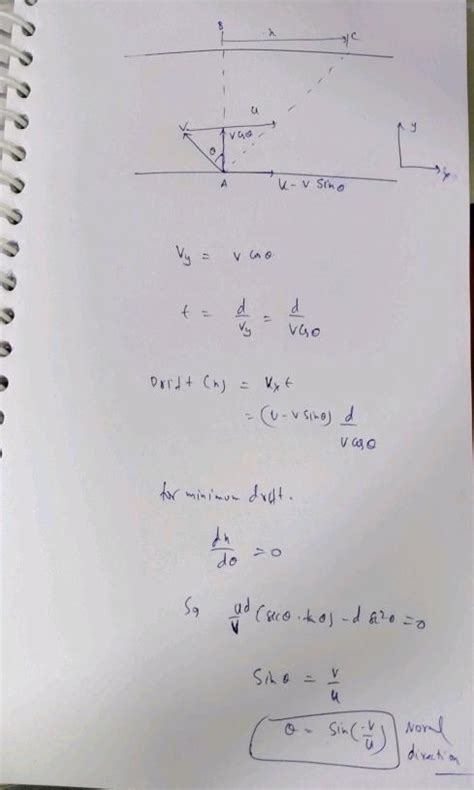 B x C
u
V
v cosθ
θ
y
A u - v sinθ x
Vy = v cosθ
t = d/Vy = d/(v cosθ)
Drift (x) = Vx t
= (u - v sinθ) d/(v cosθ)
for minimum drift.
dx/dθ = 0
So, ud/v (secθ · tanθ) - d sec²θ = 0
Sinθ = v/u
θ = Sin(-v/u) Normal
direction